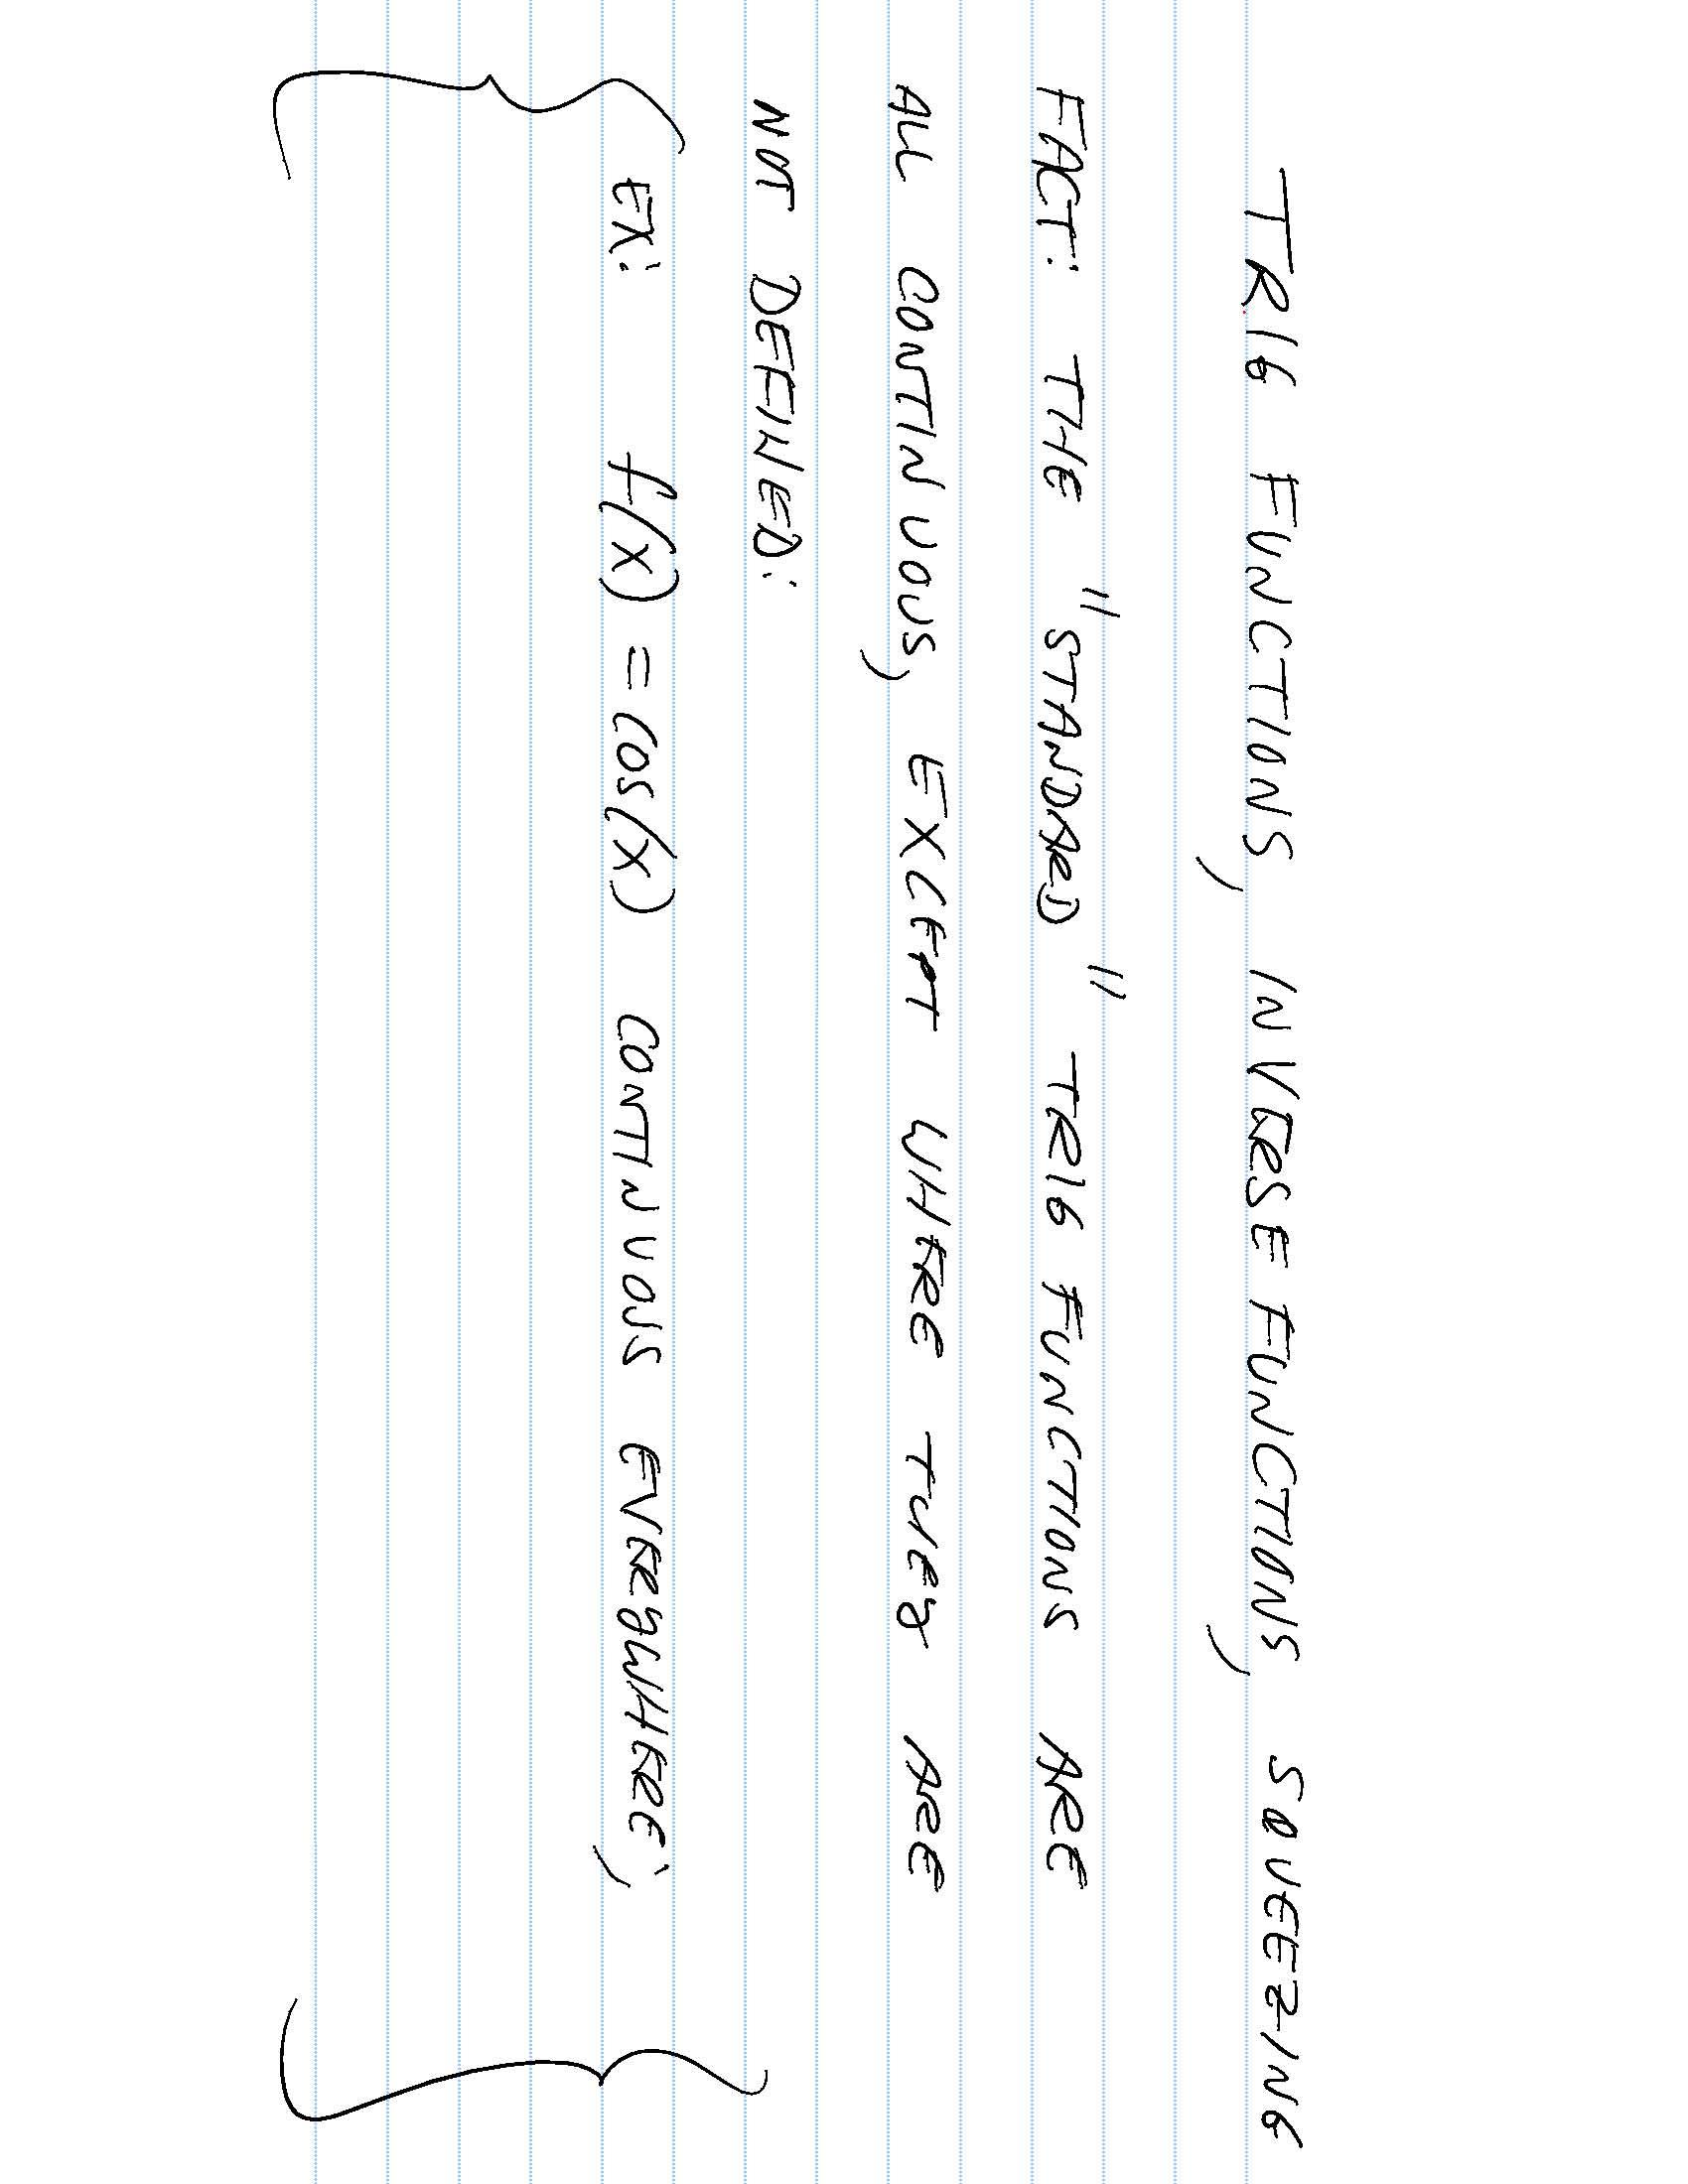 TRIG FUNCTIONS, INVERSE FUNCTIONS, SQUEEZING
FACT: THE "STANDARD" TRIG FUNCTIONS ARE
ALL CONTINUOUS, EXCEPT WHERE THEY ARE
NOT DEFINED:
EX: f(x) = cos(x) CONTINUOUS EVERYWHERE;